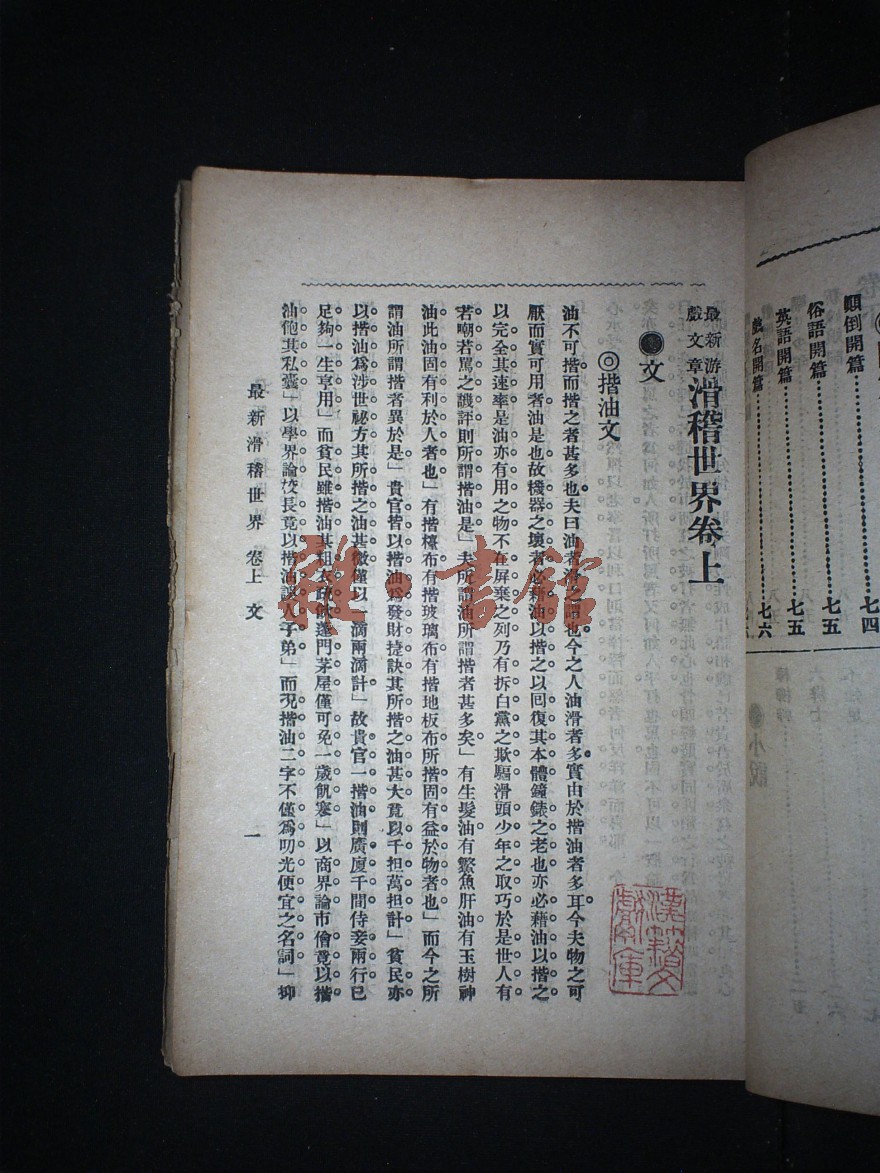 顛倒開篇……七四
俗語開篇……七五
英語開篇……七五
戲名開篇……七六
最新游戲文章 滑稽世界卷上
文
◎揩油文
油不可揩而揩之者甚多也夫曰油者滑之謂也今之人油滑者多實由於揩油者多耳今夫物之可
厭而實可用者油是也故機器之壞者必藉油以揩之以回復其本體鐘錶之老也亦必藉油以揩之
以完全其速率是油亦有用之物不在屏棄之列乃有拆白黨之欺騙滑頭少年之取巧於是世人有
若嘲若罵之譏評則所謂揩油是」夫所謂油所謂揩者甚多矣」有生髮油有鱉魚肝油有玉樹神
油此油固有利於人者也」有揩檯布有揩玻璃布有揩地板布所揩固有益於物者也」而今之所
謂油所謂揩者異於是」貴官皆以揩油爲發財捷訣其所揩之油甚大竟以千担萬担計」貧民亦
以揩油爲涉世祕方其所揩之油甚微僅以一滴兩滴計」故貴官一揩油則廣廈千間侍妾兩行已
足夠一生享用」而貧民雖揩油其粗衣疏飲蓬門茅屋僅可免一歲飢寒」以商界論市儈竟以揩
油飽其私囊」以學界論校長竟以揩油誤人子弟」而況揩油二字不僅爲叨光便宜之名詞」抑
最新滑稽世界 卷上 文 一